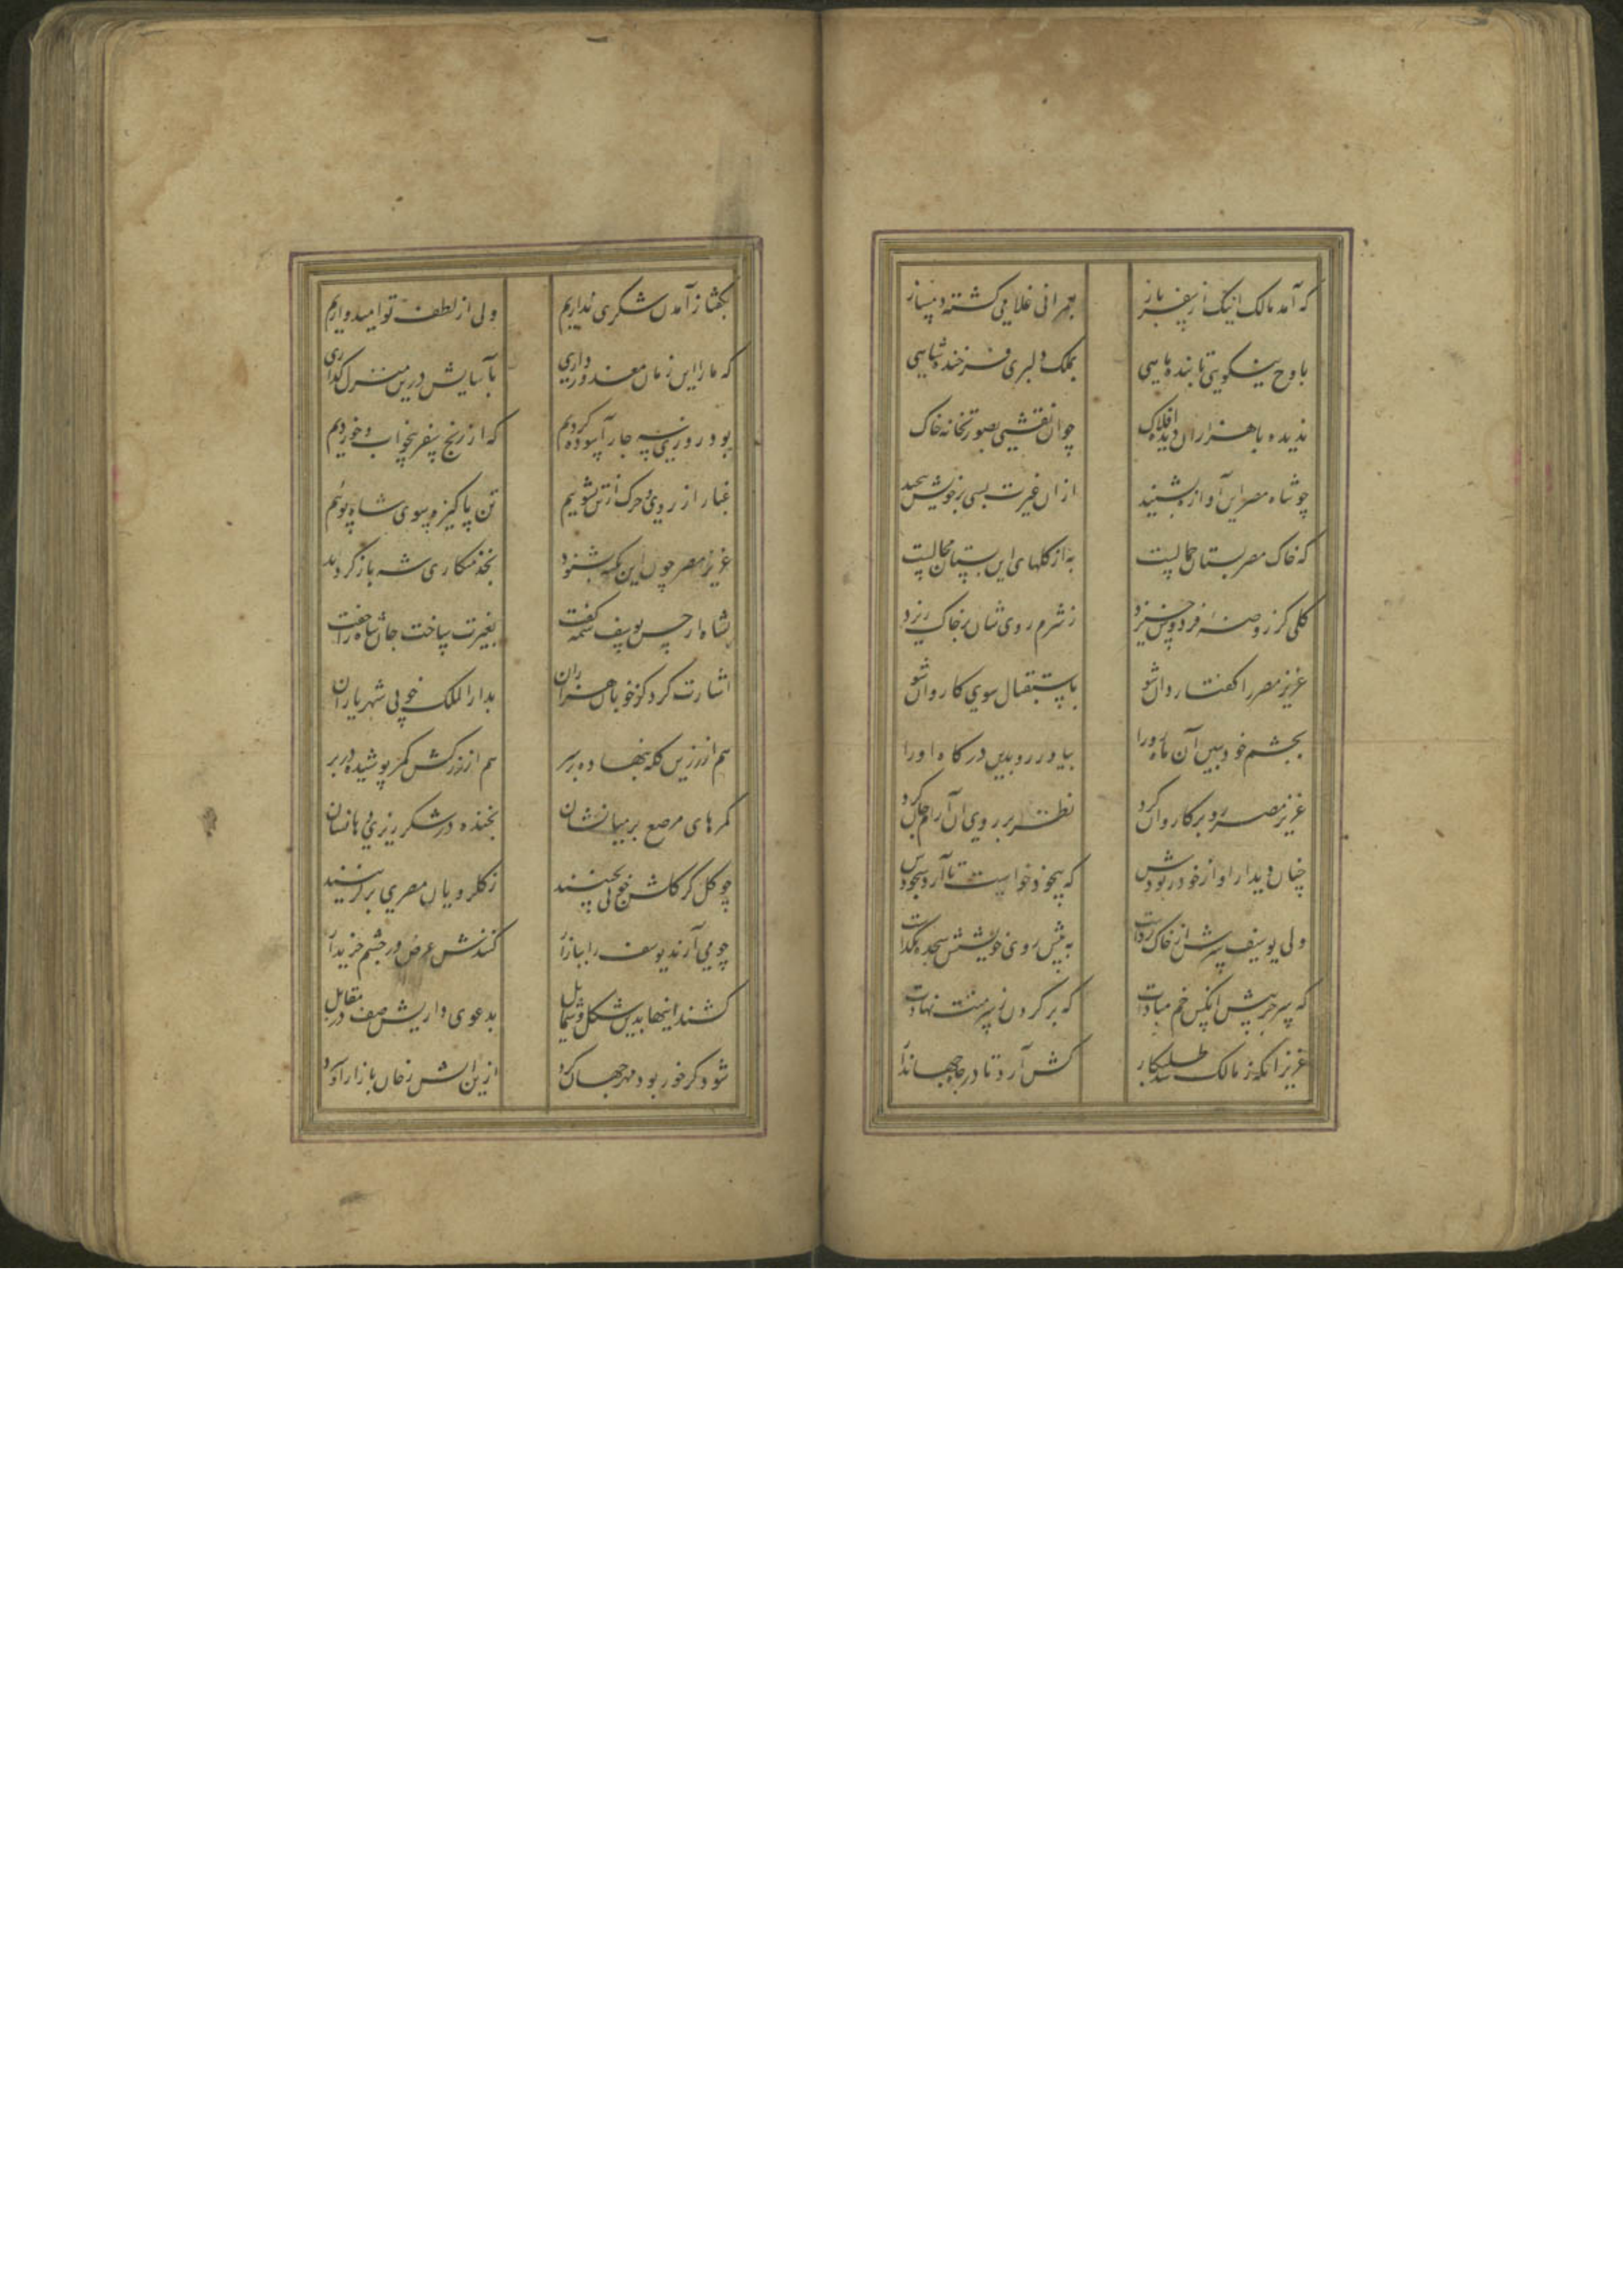 که آمد مالک اینک از سفر باز بعبرانی غلامی گشته دمساز
باوج نیکویی تابنده ماهی بملک دلبری فرخنده شاهی
ندیده با هزاران دیده افلاک چو آن نقشی بصورتخانه خاک
چو شاه مصر این آوازه بشنید از آن غیرت بسی بر خویش پیچید
که خاک مصر بستان جمالست به از گلهای این بستان محالست
گلی کز روضه فردوس خیزد ز شرم روی شان بر خاک ریزد
عزیز مصر را گفتا روان شو باستقبال سوی کاروان شو
بچشم خود ببین آن ماه رو را بیاور رو بدین درگاه او را
عزیز مصر رو بر کاروان کرد نظر بر روی آن آرام جان کرد
چنان دیدار او از خود ربودش که بیخود خواست تا آرد سجودش
ولی یوسف سرش از خاک برداشت به پیش روی خویشش سجده نگذاشت
که سر جز پیش آنکس خم مبادت که بر گردن ز سر منت نهادت
عزیز آنگه ز مالک شد طلبکار کش آرد تا در شاه جهاندار
بگفتا ز آمدن شکری نداریم ولی از لطف تو امیدواریم
که ما را این زمان معذور داری بآسایش درین منزل گذاری
بود روزی سه چار آسوده گردیم که از رنج سفر بیخواب و خوردیم
غبار از روی و چرک از تن بشوییم تن پاکیزه سوی شاه پوییم
عزیز مصر چون این نکته بشنود بخدمتکاری شه باز گردید
بشاه از حسن یوسف شمه گفت بغیرت ساخت جان شاه را جفت
اشارت کرد کز خوبان هزاران بدار الملک خوبی شهریاران
هم از زرین کله بنهاده بر سر هم از زرکش کمر پوشیده در بر
کمرهای مرصع بر میانشان بخنده در شکر ریزی دهانشان
چو گل کز گلشن خوبی بچینند ز گلرویان مصری برگزینند
چو می آرند یوسف را ببازار کنندش عرض در چشم خریدار
کشند اینها بدین شکل و شمایل بدعوی داریش صف در مقابل
شود گر خور بود مهر جهان گرد ازین آتش رخان بازار او سرد